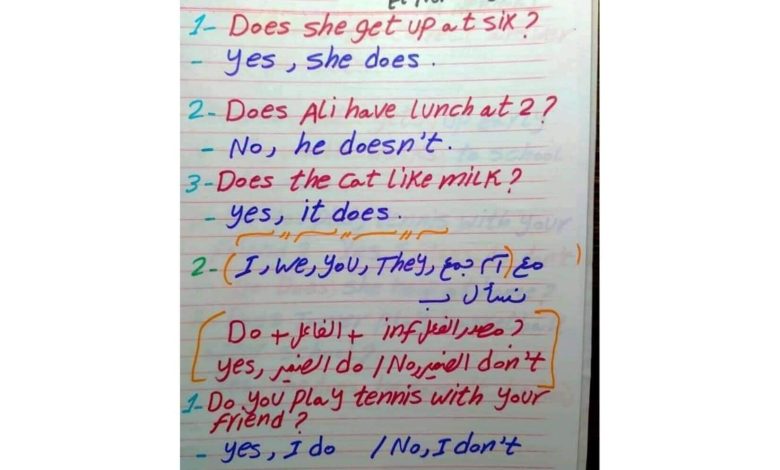 1- Does she get up at six?
- Yes, she does.
2- Does Ali have lunch at 2?
- No, he doesn't.
3- Does the cat like milk?
- yes, it does.
2- (I, we, you, They, اسم جمع) مع
نسأل ب
Do + الفاعل + inf مصدر الفعل?
yes, الضمير do / No, الضمير don't
1- Do you play tennis with your
friend?
- yes, I do / No, I don't